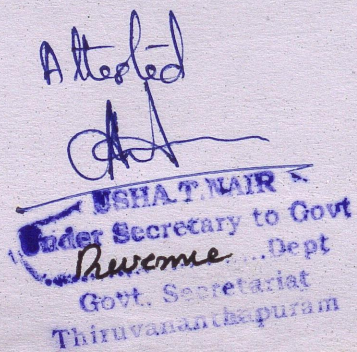 Attested
USHA.T.NAIR
Under Secretary to Govt
Revenue.....Dept
Govt. Secretariat
Thiruvananthapuram